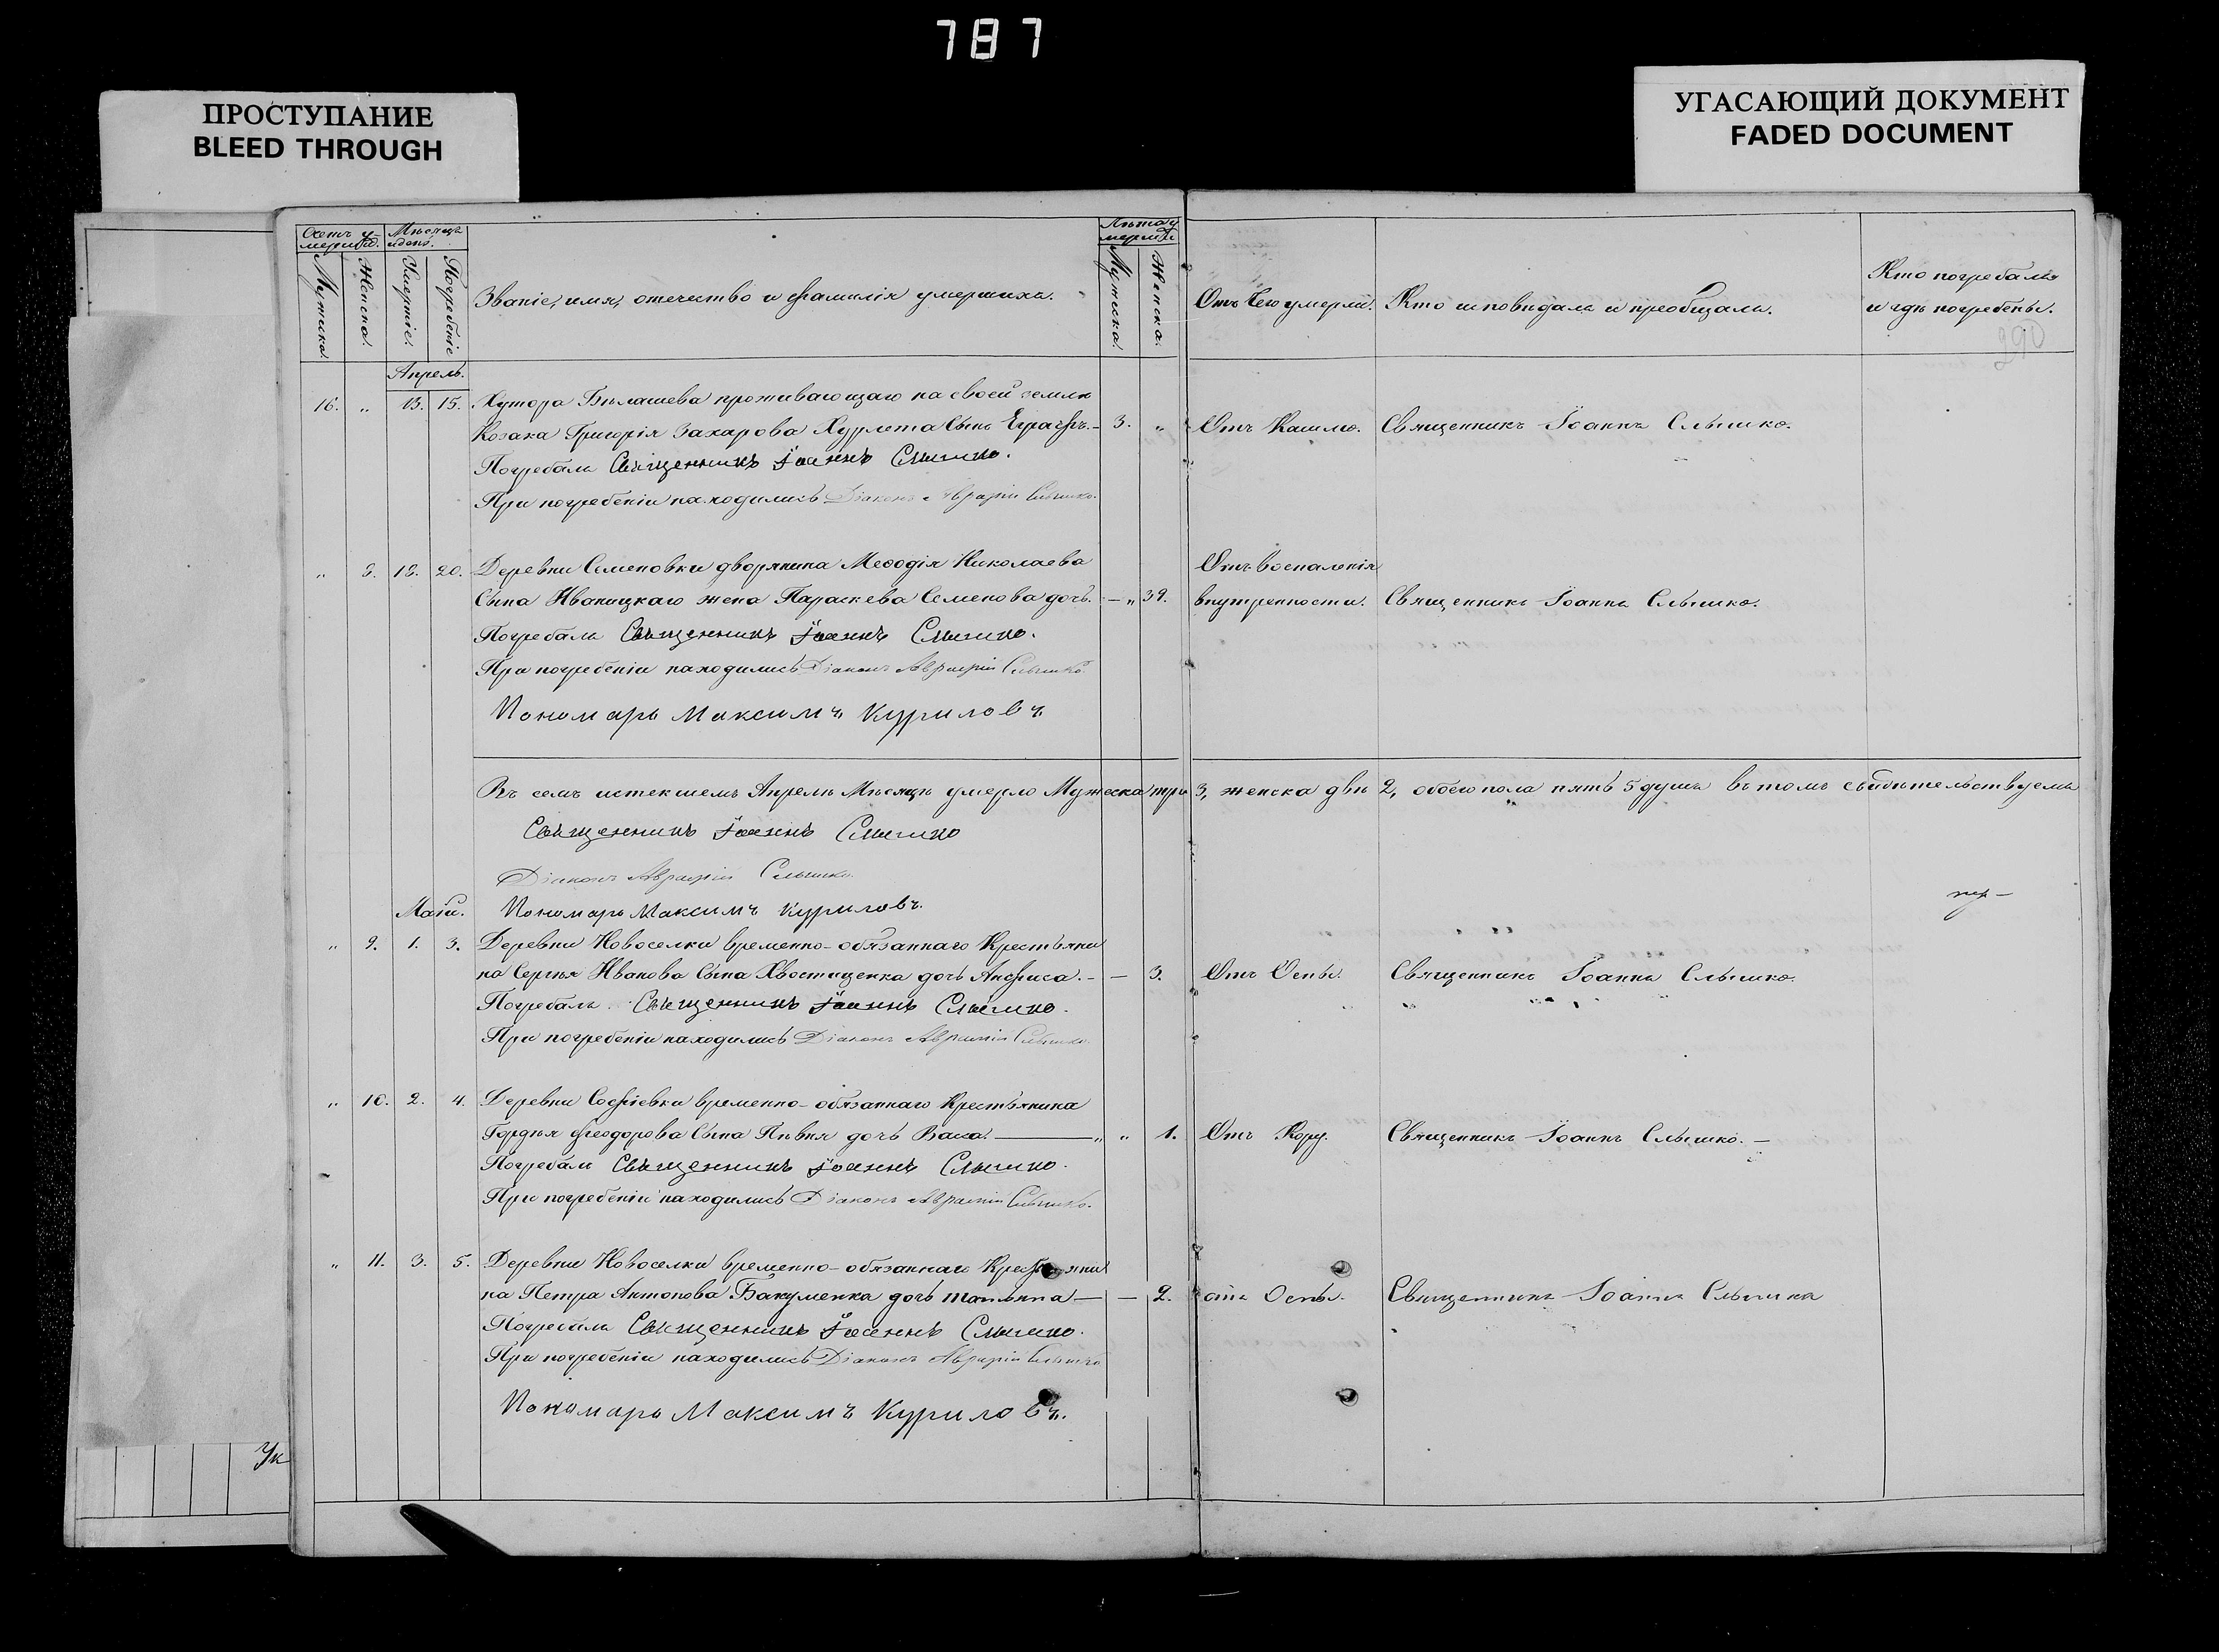 787
ПРОСТУПАНИЕ
BLEED THROUGH
УГАСАЮЩИЙ ДОКУМЕНТ
FADED DOCUMENT
Счетъ умершихъ.
Мѣсяцъ и день.
Мужска.
Женска.
Смертіе.
Погребеніе
Званіе, имя, отечество и фамилія умершихъ.
Лѣта умершихъ
Мужеска.
Женска.
Отъ чего умерли.
Кто исповѣдалъ и пріобщалъ.
Кто погребалъ
и гдѣ погребены.
290
Апрель.
16. „ 13. 15. Хутора Бѣлашева проживающаго на своей землѣ
Козака Григорія Захарова Хурлета Сынъ Евграфъ.- 3. „ Отъ Кашлю. Священникъ Іоаннъ Слышко.
Погребалъ Священникъ Іоаннъ Слышко.
При погребеніи находились Діаконъ Слышко.
„ 8. 18. 20. Деревни Семеновки дворянина Меѳодія Николаева Отъ воспаленія
Сына Иваницкаго жена Параскева Семенова дочь. - „ 39. внутренности. Священникъ Іоаннъ Слышко.
Погребалъ Священникъ Іоаннъ Слышко.
При погребеніи находились Діаконъ Слышко.
Пономарь Максимъ Куриловъ.
Въ семъ истекшемъ Апрелѣ Мѣсяцѣ умерло Мужеска три 3, женска двѣ 2, обоего пола пять 5 душъ въ томъ свидѣтельствуемъ
Священникъ Іоаннъ Слышко
Діаконъ Слышко.
Май. Пономарь Максимъ Куриловъ.
„ 9. 1. 3. Деревни Новоселки временно-обязаннаго Крестьяни
на Сергѣя Иванова Сына Хвостиценка дочь Анфиса. - - 3. Отъ Оспы. Священникъ Іоаннъ Слышко.
Погребалъ Священникъ Іоаннъ Слышко.
При погребеніи находились Діаконъ Слышко.
„ 10. 2. 4. Деревни Софіевки временно-обязаннаго Крестьянина
Гордѣя Феодорова Сына Пѣвня дочь Васа. „ „ 1. Отъ Кору. Священникъ Іоаннъ Слышко. -
Погребалъ Священникъ Іоаннъ Слышко.
При погребеніи находились Діаконъ Слышко.
„ 11. 3. 5. Деревни Новоселки временно-обязаннаго Крестьяни
на Петра Антонова Бакуменка дочь татьяна - - 2. отъ Оспы. Священникъ Іоаннъ Слышко
Погребалъ Священникъ Іоаннъ Слышко.
При погребеніи находились Діаконъ Слышко
Пономарь Максимъ Куриловъ.
Ук